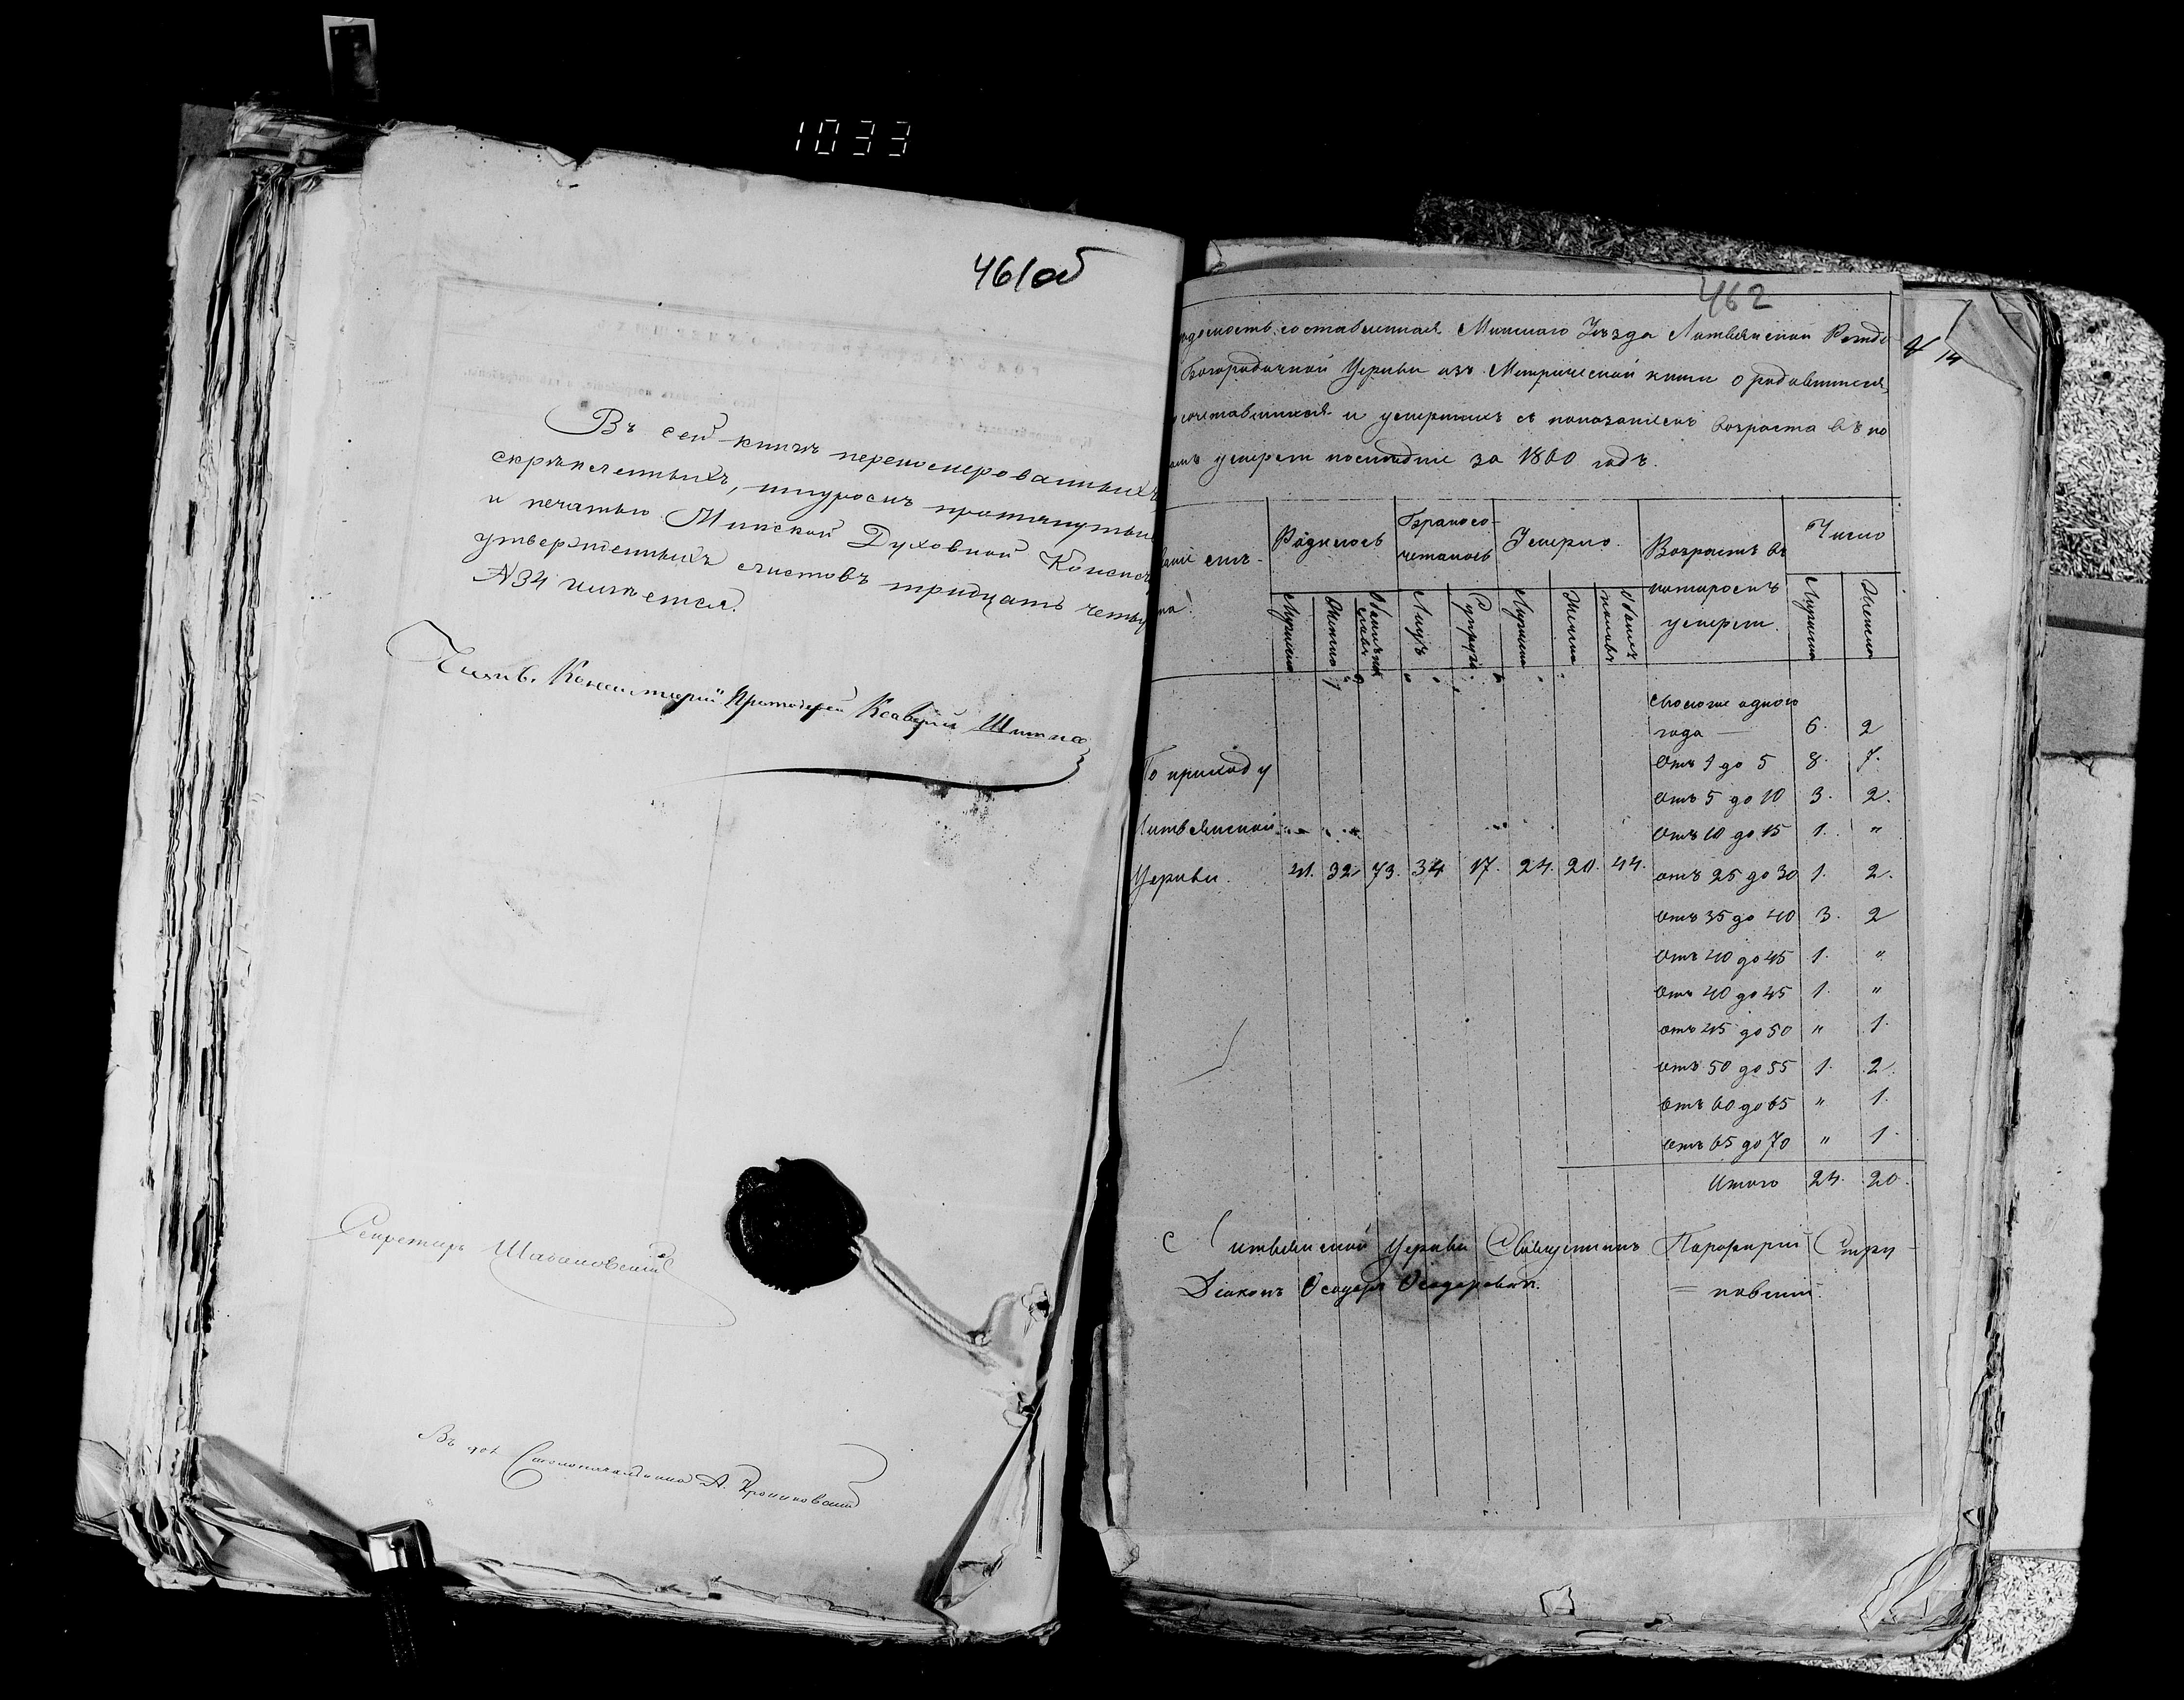 1033
461об
Въ сей книгѣ перенумерованныхъ
скрѣпленныхъ, шнуромъ протянутых
и печатью Минской Духовной Консист
утвержденныхъ листовъ тридцать четы
№34 имѣется.
Членъ Консисторіи Протоіерей Ксаверій
Секретарь
Въ дол. Столоначальника А.
462
14
домость составленная Минскаго Уѣзда Литвянской Рожде
Богородичной Церкви изъ Метрической книги о родившихся,
сочетавшихся и умершихъ съ показаніемъ возраста въ ко
умерли послѣдніе за 1860 годъ.
Родилось
Бракосо-
четалось
Умерло.
Возрастъ въ
которомъ
умерли.
Число
Мужеска
Женска
Обоихъ
Лицъ
Супруж.
Мужеска
Женска
Обоихъ половъ
Мужеска
Женска
По приходу
Литвянской
Церкви. 41. 32. 73. 34 17. 24. 20. 44.
Моложе одного
года — 6. 2
Отъ 1 до 5 8. 7.
Отъ 5 до 10 3. 2.
Отъ 10 до 15 1. "
отъ 25 до 30 1. 2.
Отъ 35 до 40 3. 2
Отъ 40 до 45 1. "
Отъ 40 до 45 1. "
отъ 45 до 50 " 1.
отъ 50 до 55 1. 2.
Отъ 60 до 65 " 1.
отъ 65 до 70 " 1.
Итого 24. 20.
Литвянской Церкви Священникъ Порфирій Стру
= ковскій.
Діаконъ Ѳеодоръ